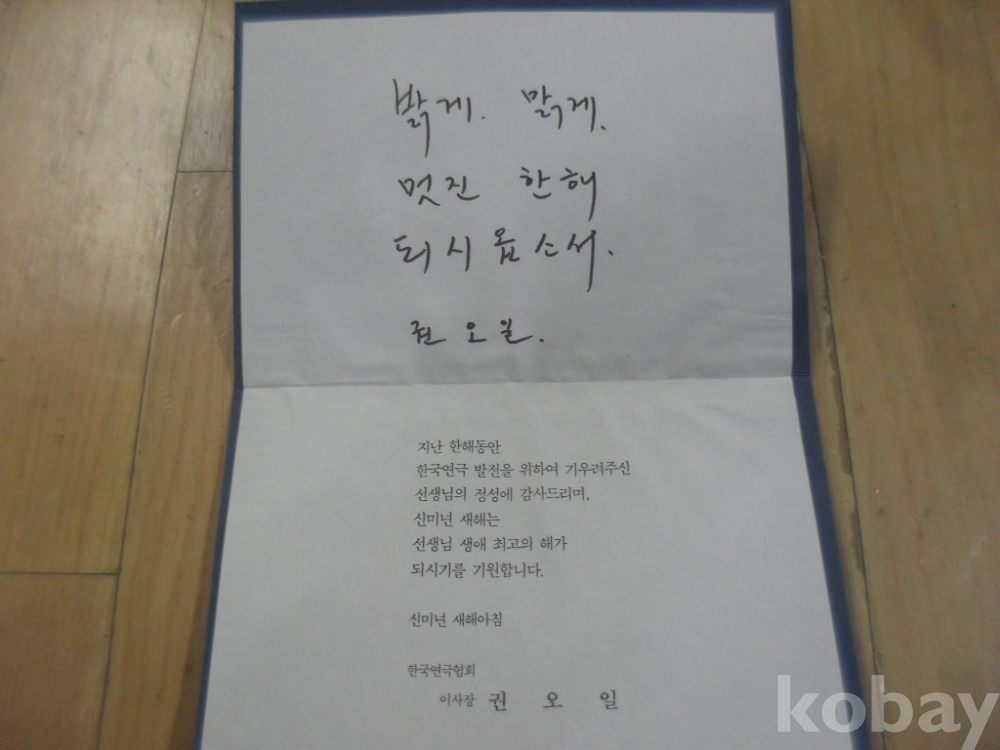 밝게. 맑게.
멋진 한해
되시옵소서.
권오일.
지난 한해동안
한국연극 발전을 위하여 기우려주신
선생님의 정성에 감사드리며,
신미년 새해는
선생님 생애 최고의 해가
되시기를 기원합니다.
신미년 새해아침
한국연극협회
이사장 권 오 일
kobay